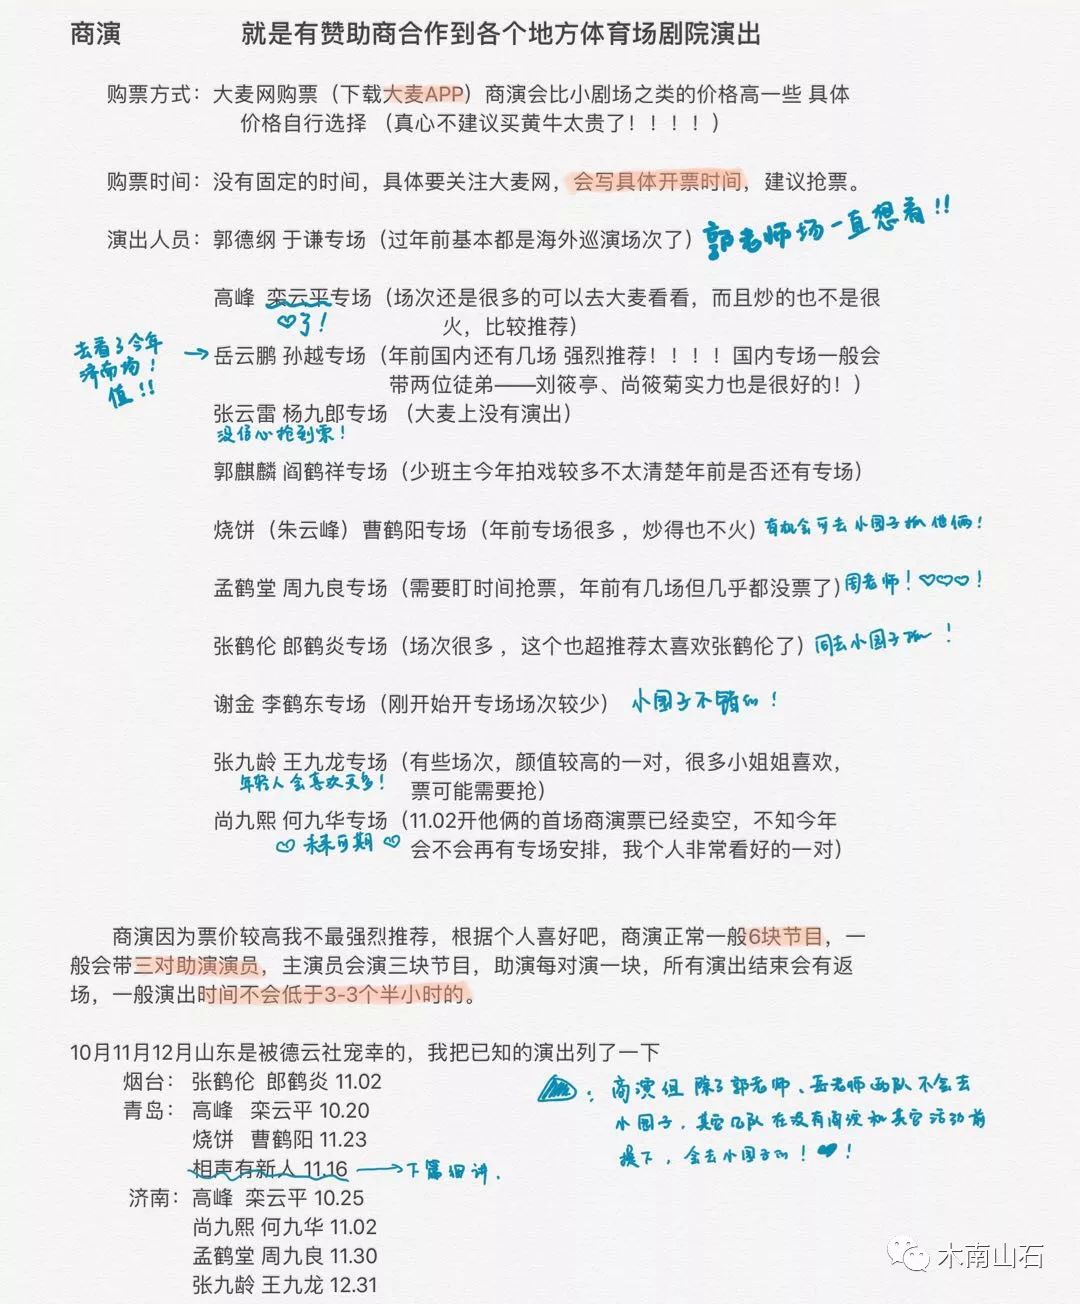 商演 就是有赞助商合作到各个地方体育场剧院演出
购票方式：大麦网购票（下载大麦APP）商演会比小剧场之类的价格高一些 具体
价格自行选择 （真心不建议买黄牛太贵了！！！！）
购票时间：没有固定的时间，具体要关注大麦网，会写具体开票时间，建议抢票。
演出人员：郭德纲 于谦专场（过年前基本都是海外巡演场次了）郭老师场一直想看!!
高峰 栾云平专场（场次还是很多的可以去大麦看看，而且炒的也不是很
♡了! 火，比较推荐）
去看了今年
济南场!
值!!
→岳云鹏 孙越专场（年前国内还有几场 强烈推荐！！！！国内专场一般会
带两位徒弟——刘筱亭、尚筱菊实力也是很好的！）
张云雷 杨九郎专场 （大麦上没有演出）
没信心抢到票!
郭麒麟 阎鹤祥专场（少班主今年拍戏较多不太清楚年前是否还有专场）
烧饼（朱云峰）曹鹤阳专场（年前专场很多 ，炒得也不火）有机会可去小园子 他俩!
孟鹤堂 周九良专场（需要盯时间抢票，年前有几场但几乎都没票了）周老师!♡♡♡!
张鹤伦 郎鹤炎专场（场次很多 ，这个也超推荐太喜欢张鹤伦了）去小园子 !
谢金 李鹤东专场（刚开始开专场场次较少） 小园子不错的!
张九龄 王九龙专场（有些场次，颜值较高的一对，很多小姐姐喜欢，
年轻人会喜欢更多! 票可能需要抢）
尚九熙 何九华专场（11.02开他俩的首场商演票已经卖空，不知今年
♡未来可期♡ 会不会再有专场安排，我个人非常看好的一对）
商演因为票价较高我不最强烈推荐，根据个人喜好吧，商演正常一般6块节目，一
般会带三对助演演员，主演员会演三块节目，助演每对演一块，所有演出结束会有返
场，一般演出时间不会低于3-3个半小时的。
10月11月12月山东是被德云社宠幸的，我把已知的演出列了一下
烟台： 张鹤伦 郎鹤炎 11.02
青岛： 高峰 栾云平 10.20
烧饼 曹鹤阳 11.23
相声有新人 11.16 →下篇细讲.
济南：高峰 栾云平 10.25
尚九熙 何九华 11.02
孟鹤堂 周九良 11.30
张九龄 王九龙 12.31
商演但除了郭老师、岳老师两队不会去
小园子，其它几队在没有商演和其它活动前
提下，会去小园子的!♥!
木南山石